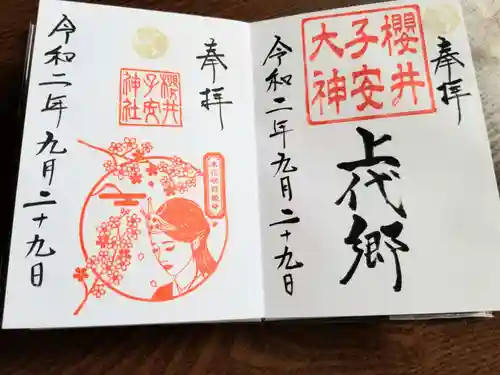 奉拝
櫻井子安大神
上代郷
令和二年九月二十九日
奉拝
櫻井子安神社
木花咲耶姫命
令和二年九月二十九日